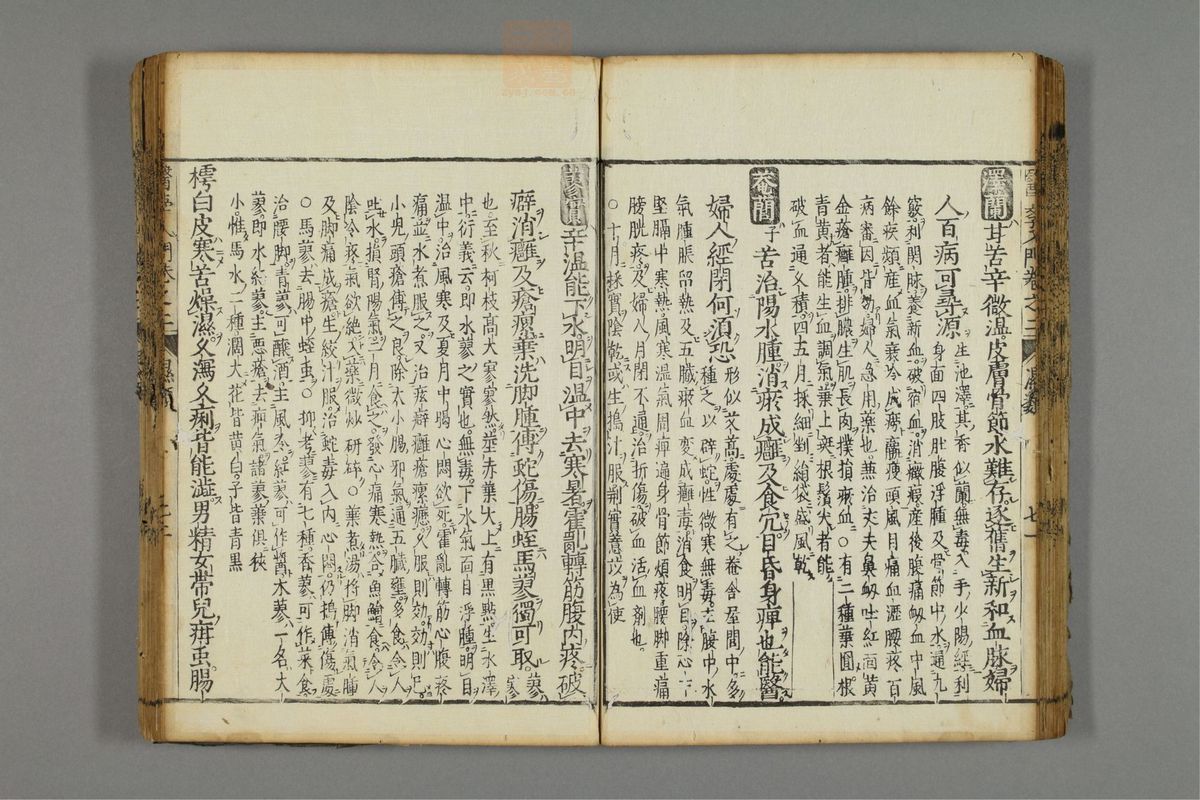 澤蘭甘苦辛微溫皮膚骨節水難存逐舊生新和血脉婦
人百病可尋源生池澤其香似蘭無毒入手少陽經利
身面四肢肚腹浮腫及骨節中水通九
竅利関脉養新血破宿血消癥瘕産後腹痛衂血中風
餘疾頻産血氣衰冷成癆瘦頭風目痛血瀝腰疼百
病審因皆効婦人急用藥也兼治丈夫鼻衂吐紅面黄
金瘡癰腫排膿生肌長肉撲損瘀血○有二種葉圓根
青黄者能生血調氣葉上斑根鬚尖者能
破血通久積四五月採細剉絹袋盛風乾
菴䕡子苦治陽水腫消瘀成癰及食冗目昏身痺也能醫
婦人經閉何須恐形似艾蒿處處有之菴舍屋間中多
種之以辟蛇性微寒無毒去腹中水
氣臚脹留熱及五臟瘀血変成癰毒消食明目除心下
堅膈中寒熱風寒溫氣周痺遍身骨節煩疼腰脚重痛
膀胱疼及婦人月閉不通治折傷破血活血劑也
○十月採實陰乾或生搗汁服荆實薏苡為使
蓼實辛溫能下水明目溫中去寒暑霍亂轉筋腹内疼破
癖消癰及瘡痍葉洗脚腫傅蛇傷腸蛭馬蓼獨可取蓼
也至秋柯枝高大寥寥然莖赤葉大上有黑點生水澤
中衍義云即水蓼之實也無毒下水氣面目浮腫明目
溫中治風寒及夏月中暍心悶欲死霍亂轉筋心腹疼
痛並水煮服之又治痃癖癰瘡瘰癧久服則効効則
小兒頭瘡傅之良除大小腸邪氣通五臟壅多食令人
吐水損腎陽氣二月食之發心痛寒熱合魚鱠食令人
陰冷疼氣欲絶入藥微炒研碎○葉煮湯将脚消氣腫
及脚痛成瘡生絞汁服治蛇毒入内心悶仍搗傅傷處
○馬蓼去腸中蛭虫○抑考蓼有七種香蓼可作菜食
治腰脚青蓼可釀酒主風冷紅蓼可作醬木蓼一名大
蓼即水紅蓼主惡瘡去痹氣諸蓼葉俱狹
小惟馬水二種濶大花皆黄白子皆青黑
樗白皮寒苦燥濕久瀉久痢皆能澁男精女帶兒疳虫腸